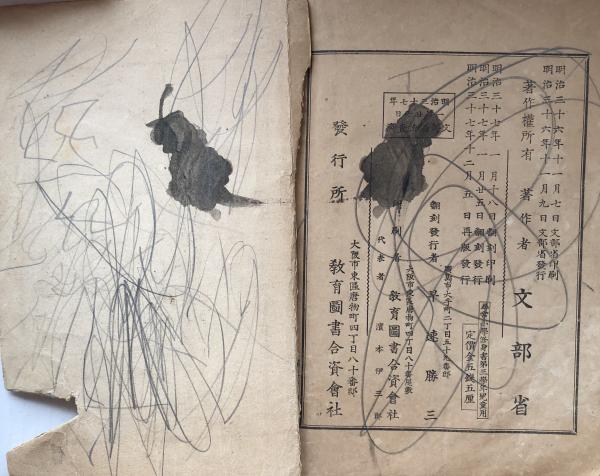 明治三十六年十一月七日文部省印刷
明治三十六年十一月九日文部省發行
著作權所有 著作者 文部省
明治三十七年一月十八日翻刻印刷
明治三十七年一月廿五日翻刻發行
明治三十七年十二月五日再版發行
尋常小學修身書第三學年兒童用
定價金五錢五厘
明治三十七年
翻刻發行者
勝三
大阪市東區唐物町四丁目八十番屋敷
印刷者 教育圖書合資會社
代表者 濱本伊三郎
發行所
大阪市東區唐物町四丁目八十番邸
教育圖書合資會社